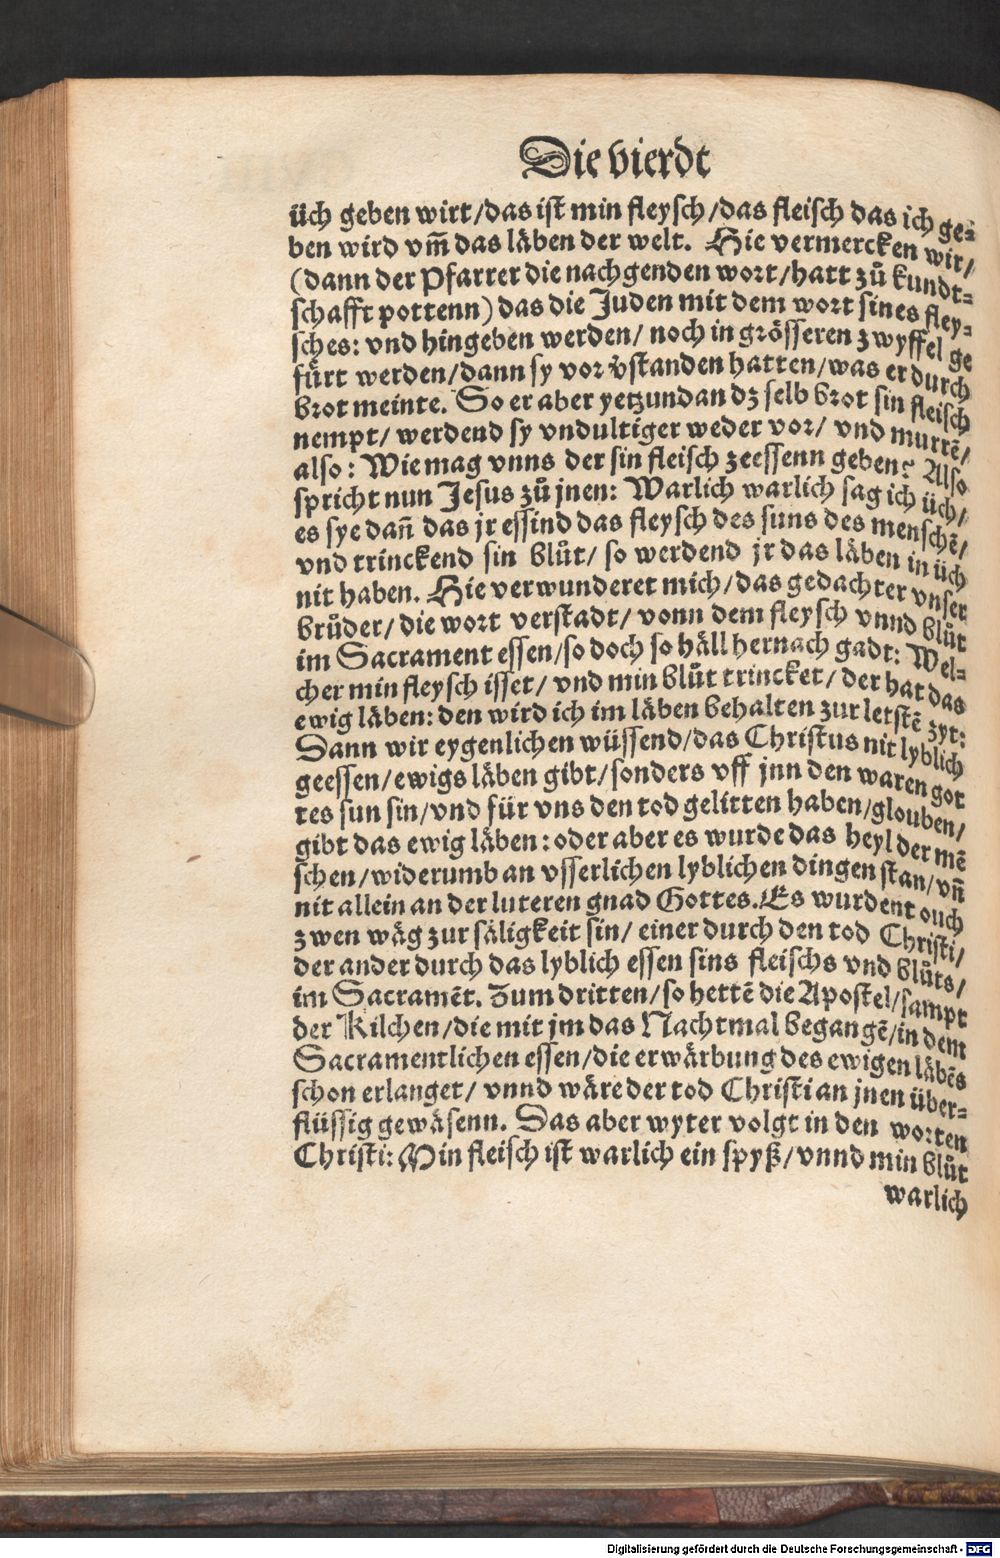 Die vierdt
üch geben wirt/das ist min fleysch/das fleisch das ich ge-
ben wird vm̄ das läben der welt. Hie vermercken wir/
(dann der Pfarrer die nachgenden wort/hatt zů kundt-
schafft pottenn) das die Juden mit dem wort sines fley-
sches: vnd hingeben werden/ noch in grösseren zwyffel ge
fürt werden/dann sy vor v̊standen hatten/was er durch
brot meinte. So er aber yetzundan dz selb brot sin fleisch
nempt/ werdend sy vndultiger weder vor/ vnd murrē/
also: Wie mag vnns der sin fleisch zeessenn geben? Also
spricht nun Jesus zů jnen: Warlich warlich sag ich üch/
es sye dañ das jr essind das fleysch des suns des menschē/
vnd trinckend sin blůt/ so werdend jr das läben in üch
nit haben. Hie verwunderet mich/das gedachter vnser
brůder/die wort verstadt/ vonn dem fleysch vnnd blůt
im Sacrament essen/so doch so häll hernach gadt: Wel-
cher min fleysch isset/ vnd min blůt trincket/ der hat das
ewig läben: den wird ich im läben behalten zur letstē zyt:
Dann wir eygenlichen wüssend/das Christus nit lyblich
geessen/ewigs läben gibt/sonders vff jnn den waren got
tes sun sin/vnd für vns den tod gelitten haben/glouben/
gibt das ewig läben: oder aber es wurde das heyl der mē
schen/widerumb an vsserlichen lyblichen dingen stan/vñ
nit allein an der luteren gnad Gottes. Es wurdent ouch
zwen wäg zur säligkeit sin/ einer durch den tod Christi/
der ander durch das lyblich essen sins fleischs vnd blůts/
im Sacramēt. Zum dritten/so hettē die Apostel/sampt
der Kilchen/die mit jm das Nachtmal begangē/in dem
Sacramentlichen essen/die erwärbung des ewigen läbēs
schon erlanget/ vnnd wäre der tod Christi an jnen über-
flüssig gewäsenn. Das aber wyter volgt in den worten
Christi: Min fleisch ist warlich ein spyß/vnnd min blůt
warlich
Digitalisierung gefördert durch die Deutsche Forschungsgemeinschaft - DFG